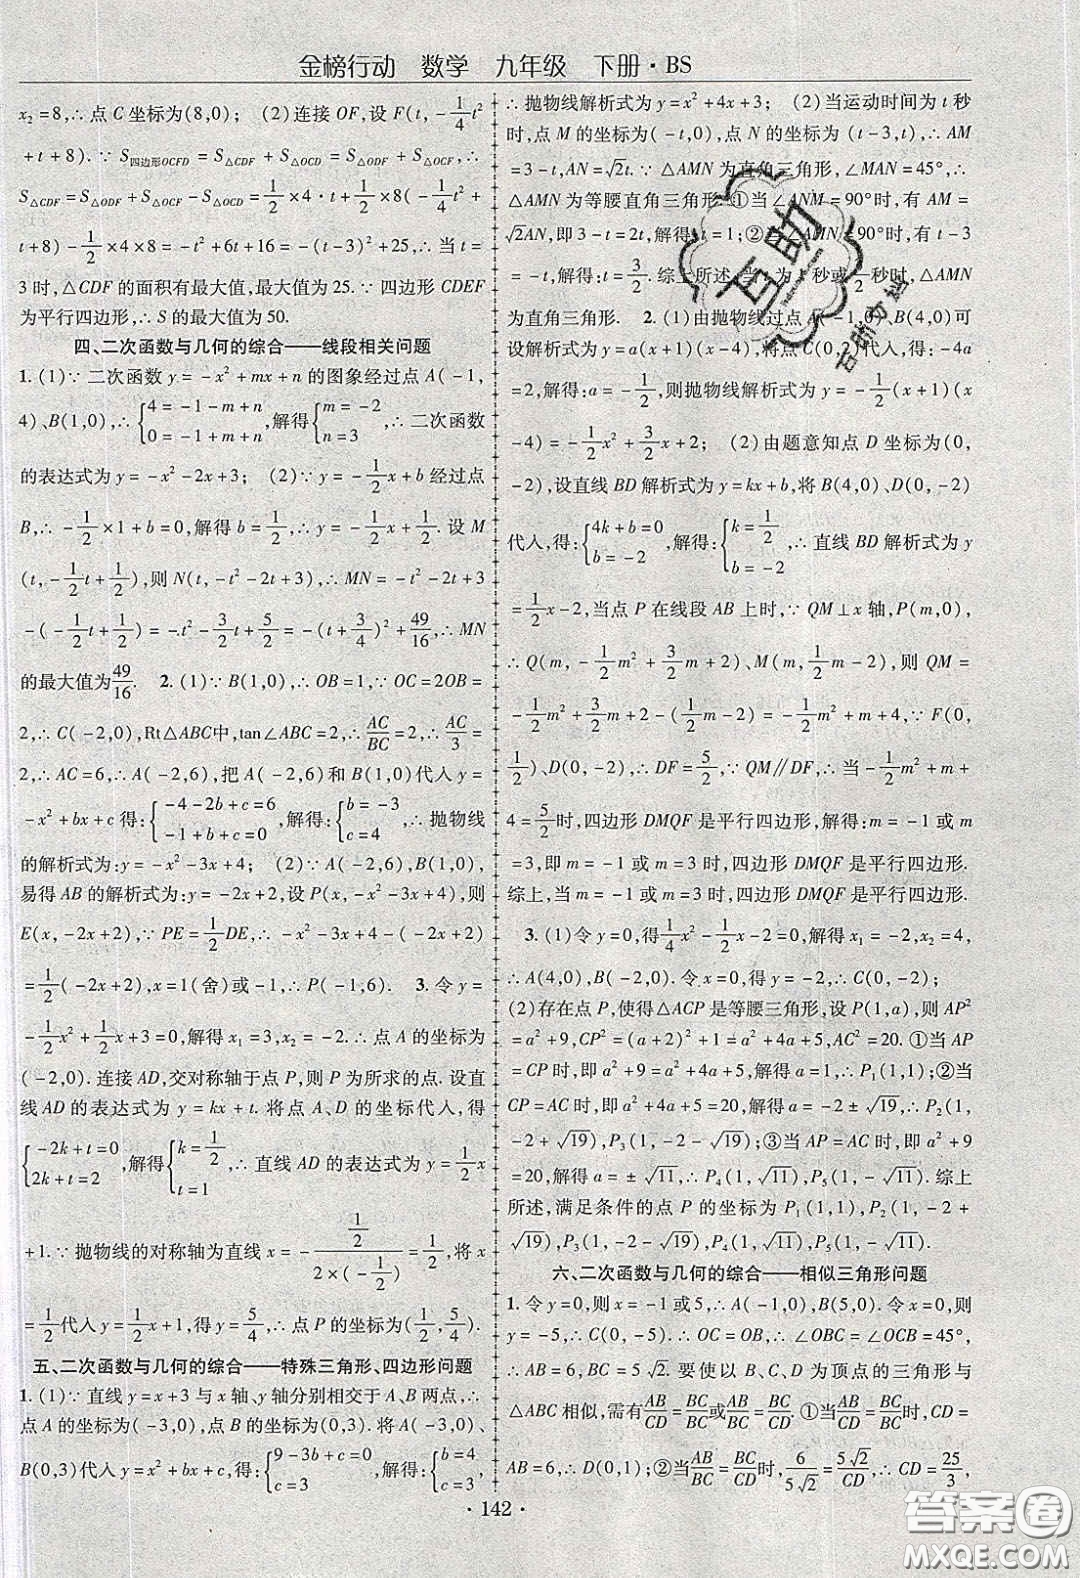 金榜行动　数学　九年级　下册·BS
x₂=8,∴点C坐标为(8,0);　(2)连接OF,设F(t,-1/4t²
+t+8).∵S四边形OCFD=S△CDF+S△OCD=S△ODF+S△OCF,∴
S△CDF=S△ODF+S△OCF-S△OCD=1/2×4·t+1/2×8(-1/4t²+
t+8)-1/2×4×8=-t²+6t+16=-(t-3)²+25,∴当t=
3时,△CDF的面积有最大值,最大值为25.∵四边形CDEF
为平行四边形,∴S的最大值为50.
四、二次函数与几何的综合——线段相关问题
1.(1)∵二次函数y=-x²+mx+n的图象经过点A(-1,
4)、B(1,0),∴{4=-1-m+n 0=-1+m+n,解得{m=-2 n=3,∴二次函数
的表达式为y=-x²-2x+3;　(2)∵y=-1/2x+b经过点
B,∴-1/2×1+b=0,解得b=1/2,∴y=-1/2x+1/2.设M
(t,-1/2t+1/2),则N(t,-t²-2t+3),∴MN=-t²-2t+3
-(-1/2t+1/2)=-t²-3/2t+5/2=-(t+3/4)²+49/16,∴MN
的最大值为49/16.　2.(1)∵B(1,0),∴OB=1,∵OC=2OB=
2,∴C(-2,0),Rt△ABC中,tan∠ABC=2,∴AC/BC=2,∴AC/3=
2,∴AC=6,∴A(-2,6),把A(-2,6)和B(1,0)代入y=
-x²+bx+c得:{-4-2b+c=6 -1+b+c=0,解得:{b=-3 c=4,∴抛物线
的解析式为:y=-x²-3x+4;　(2)∵A(-2,6),B(1,0),
易得AB的解析式为:y=-2x+2,设P(x,-x²-3x+4),则
E(x,-2x+2),∵PE=1/2DE,∴-x²-3x+4-(-2x+2)
=1/2(-2x+2),x=1(舍)或-1,∴P(-1,6).　3.令y=
-1/2x²+1/2x+3=0,解得x₁=3,x₂=-2.∴点A的坐标为
(-2,0).连接AD,交对称轴于点P,则P为所求的点.设直
线AD的表达式为y=kx+t.将点A、D的坐标代入,得
{-2k+t=0 2k+t=2,解得{k=1/2 t=1,∴直线AD的表达式为y=1/2x
+1.∵抛物线的对称轴为直线x=-(1/2)/(2×(-1/2))=1/2,将x=
1/2代入y=1/2x+1,得y=5/4,∴点P的坐标为(1/2,5/4).
五、二次函数与几何的综合——特殊三角形、四边形问题
1.(1)∵直线y=x+3与x轴、y轴分别相交于A、B两点,∴
点A的坐标为(-3,0),点B的坐标为(0,3).将A(-3,0)、
B(0,3)代入y=x²+bx+c,得:{9-3b+c=0 c=3,解得:{b=4 c=3,
∴抛物线解析式为y=x²+4x+3;　(2)当运动时间为t秒
时,点M的坐标为(-t,0),点N的坐标为(t-3,t),∴AM
=3-t,AN=√2t.∵△AMN为直角三角形,∠MAN=45°,∴
△AMN为等腰直角三角形.①当∠ANM=90°时,有AM=
√2AN,即3-t=2t,解得:t=1;②当∠AMN=90°时,有t-3
=-t,解得:t=3/2.综上所述,当t为1秒或3/2秒时,△AMN
为直角三角形.　2.(1)由抛物线过点A(-1,0)、B(4,0)可
设解析式为y=a(x+1)(x-4),将点C(0,2)代入,得:-4a
=2,解得:a=-1/2,则抛物线解析式为y=-1/2(x+1)(x
-4)=-1/2x²+3/2x+2;　(2)由题意知点D坐标为(0,
-2),设直线BD解析式为y=kx+b,将B(4,0)、D(0,-2)
代入,得:{4k+b=0 b=-2,解得:{k=1/2 b=-2,∴直线BD解析式为y
=1/2x-2,当点P在线段AB上时,∵QM⊥x轴,P(m,0),
∴Q(m,-1/2m²+3/2m+2)、M(m,1/2m-2),则QM=
-1/2m²+3/2m+2-(1/2m-2)=-1/2m²+m+4,∵F(0,
1/2)、D(0,-2),∴DF=5/2,∵QM∥DF,∴当-1/2m²+m+
4=5/2时,四边形DMQF是平行四边形,解得:m=-1或m
=3,即m=-1或m=3时,四边形DMQF是平行四边形.
综上,当m=-1或m=3时,四边形DMQF是平行四边形.
3.(1)令y=0,得1/4x²-1/2x-2=0,解得x₁=-2,x₂=4,
∴A(4,0),B(-2,0).令x=0,得y=-2,∴C(0,-2);
(2)存在点P,使得△ACP是等腰三角形,设P(1,a),则AP²
=a²+9,CP²=(a+2)²+1=a²+4a+5,AC²=20.①当AP
=CP时,即AP²=CP²,a²+9=a²+4a+5,解得a=1,∴P₁(1,1);②当
CP=AC时,即a²+4a+5=20,解得a=-2±√19,∴P₂(1,
-2+√19),P₃(1,-2-√19);③当AP=AC时,即a²+9
=20,解得a=±√11,∴P₄(1,√11),P₅(1,-√11).综上
所述,满足条件的点P的坐标为P₁(1,1),P₂(1,-2+
√19),P₃(1,-2-√19),P₄(1,√11),P₅(1,-√11).
六、二次函数与几何的综合——相似三角形问题
1.令y=0,则x=-1或5,∴A(-1,0),B(5,0).令x=0,则
y=-5,∴C(0,-5).∴OC=OB,∴∠OBC=∠OCB=45°,
∴AB=6,BC=5√2.要使以B、C、D为顶点的三角形与
△ABC相似,需有AB/CD=BC/BC或AB/BC=BC/CD.①当AB/CD=BC/BC时,CD=
AB=6,∴D(0,1);②当AB/BC=BC/CD时,6/5√2=5√2/CD,∴CD=25/3,
·142·
互助
答案圈
MXQE.COM